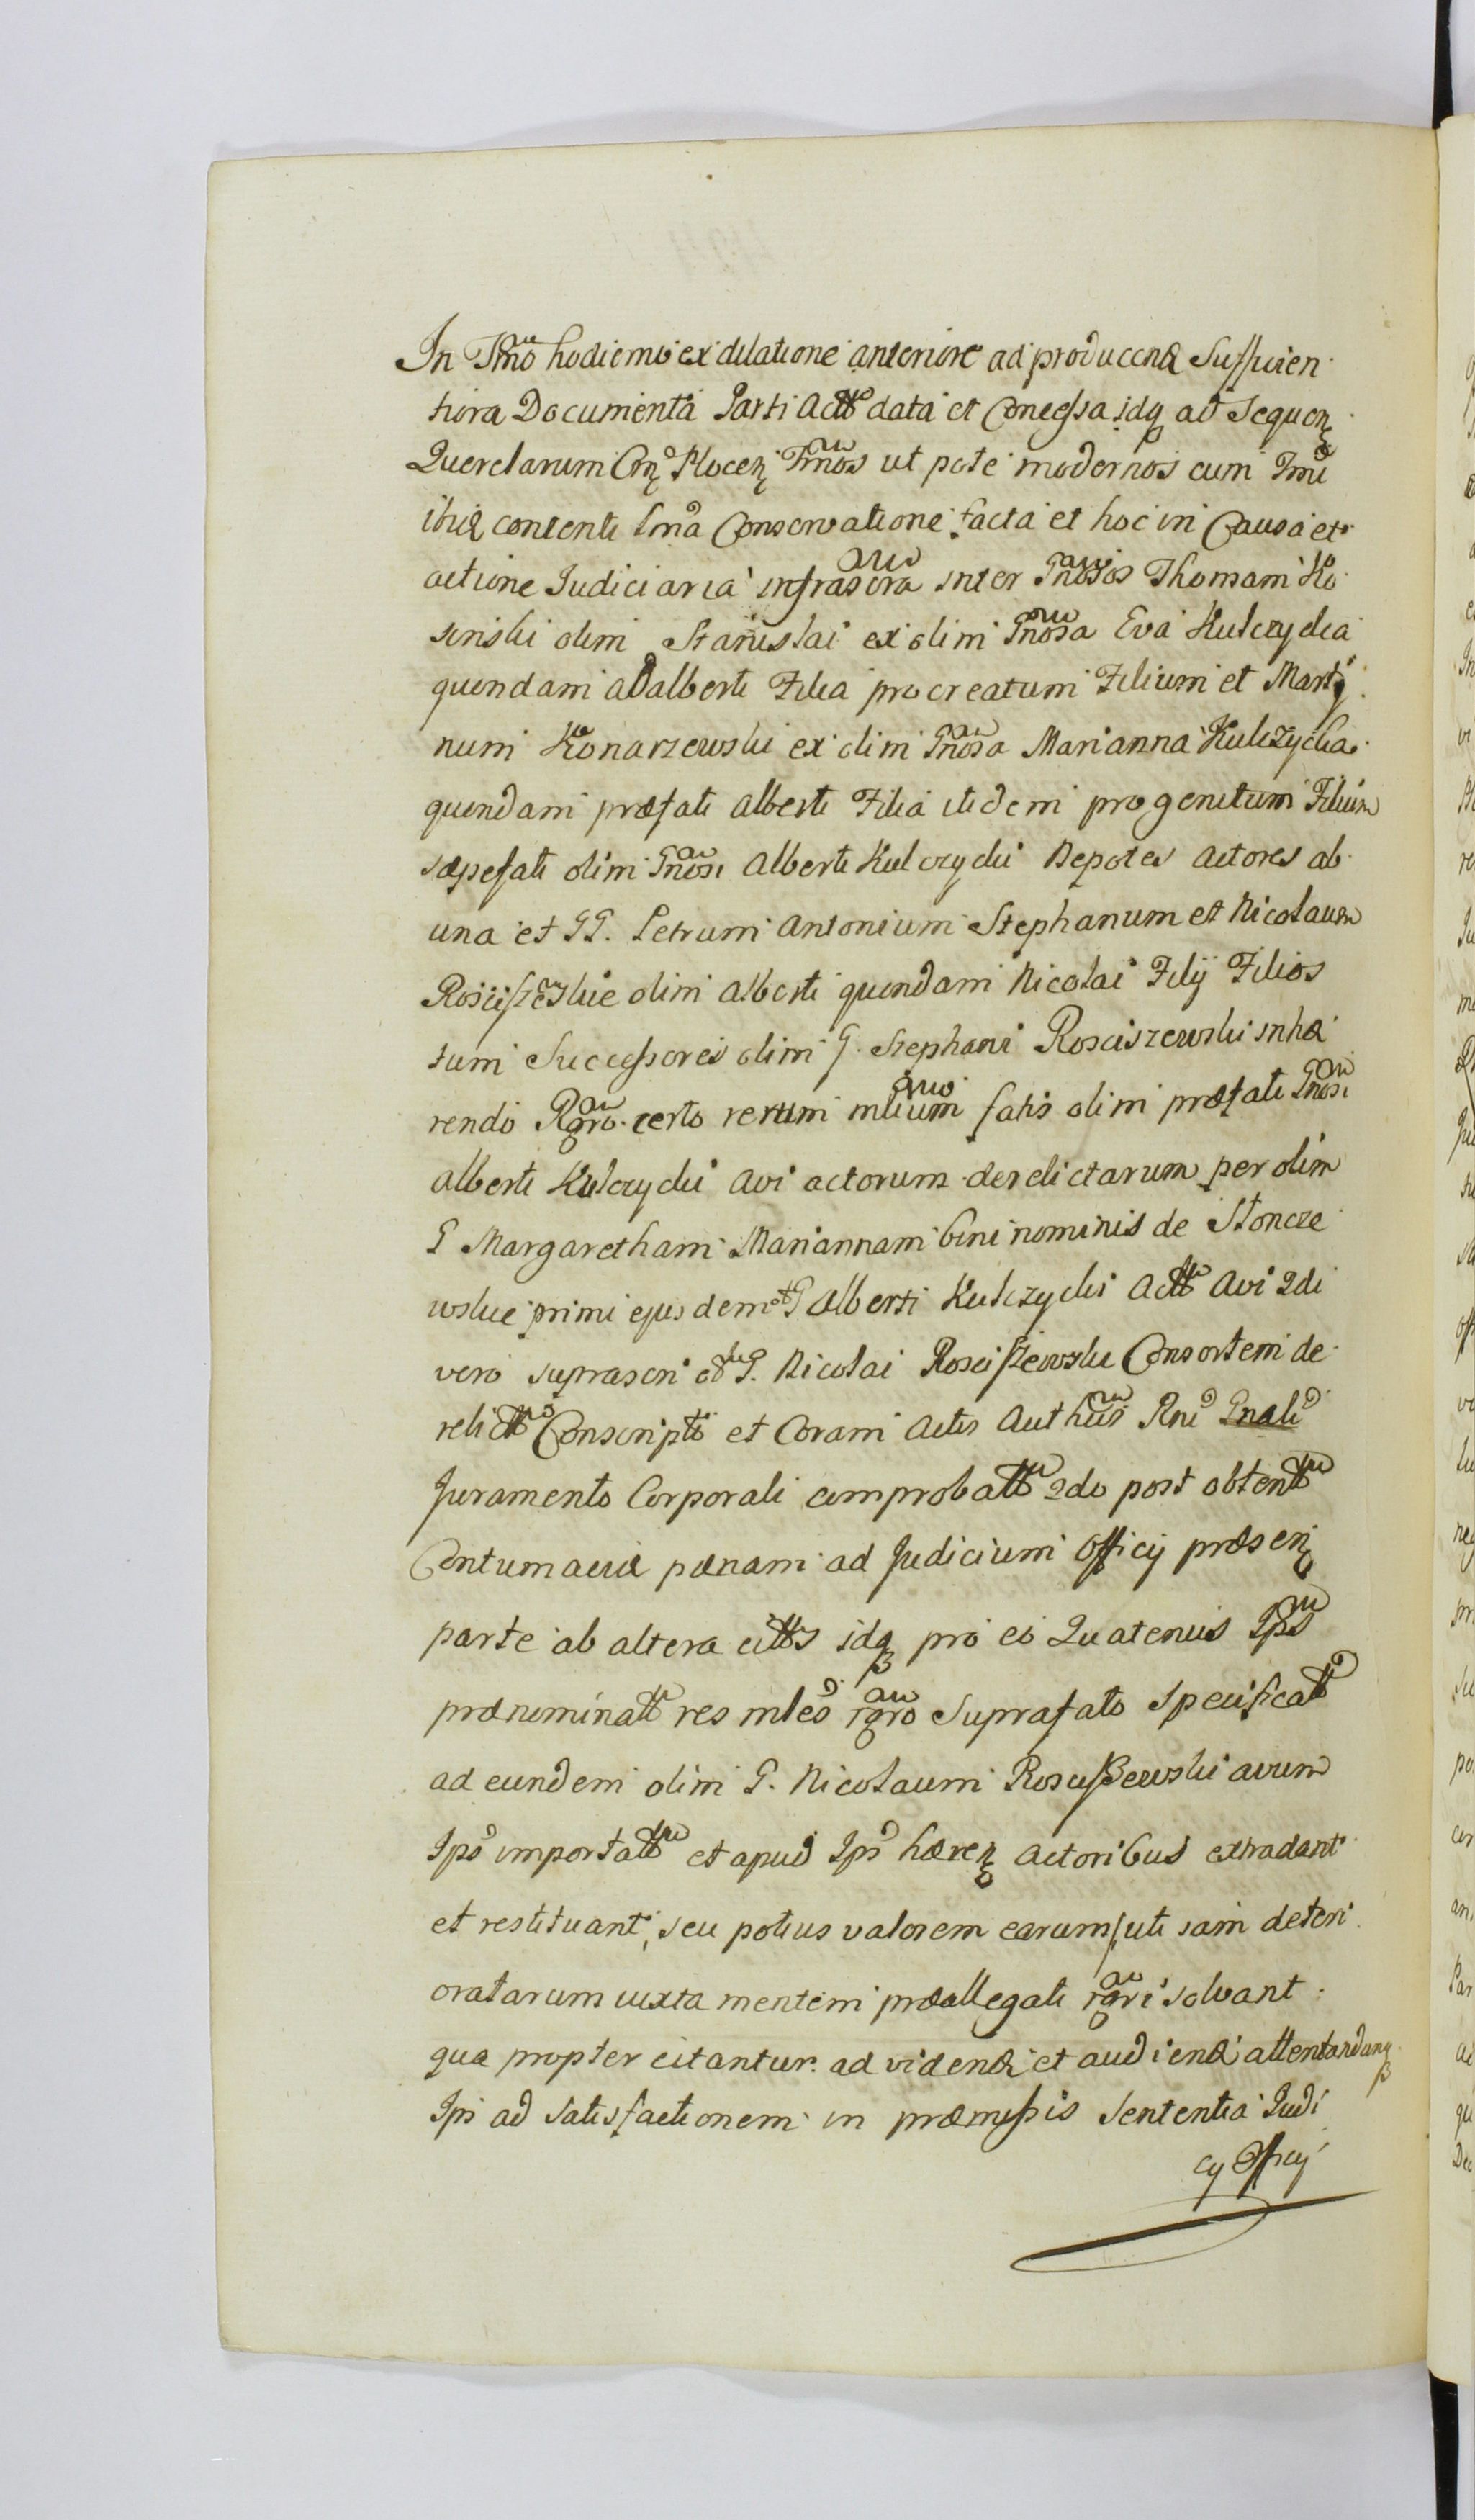 In Tmno hodierno ex dilatione anteriore ad producend Sufficien
tiora Documenta Parti Actt data et Concessa idq ad Sequen
Querelarum Con Plocen Tmnos ut pote modernos cum Tmi
ibid contenti Conservatione facta et hoc in Causa et
actione Judiciaria infrascra inter Gnosos Thomam Ko
sinski olim Stanislai ex olim Gnosa Eva Kulczycka
quondam Adalberti Filia procreatum Filium et Marty
num Konarzewski ex olim Gnosa Marianna Kulczycka
quondam præfati Alberti Filia itidem progenitum Filium
sæpefati olim Gnosi Alberti Kulczycki Nepotes Actores ab
una et GG. Petrum Antonium Stephanum et Nicolaum
Rosciszewskie olim Alberti quondam Nicolai Filij Filios
tum Successores olim G. Stephani Rosciszewski inhæ
rendo Rgro certo rerum mlium fatis olim præfati Gnosi
Alberti Kulczycki Avi actorum derelictarum per olim
G Margaretham Mariannam bini nominis de Stoncze
wskie primi ejusdem G Alberti Kulczycki Actt Avi 2di
vero suprascri G. Nicolai Rosciszewski Consortem de
relictt Conscripto et Coram Actis Authcis Rni Gnali
Juramento Corporali comprobatt 2do post obtent
Contumaciæ pœnam ad Judicium Officij præsen
parte ab altera citts idq pro eo Quatenus Ipsi
prænominatt res mles rgro Suprafato Specificatt
ad eundem olim G. Nicolaum Rosciszewski avum
Ips importatt et apud Ips hæren actoribus extradant
et restituant, seu potius valorem earum uti jam deteri
oratarum iuxta mentem præallegati rgri solvant
qua propter citantur ad vidend et audiend attentandamq
Ips ad Satisfactionem in præmissis Sententia Judi
cij Officij